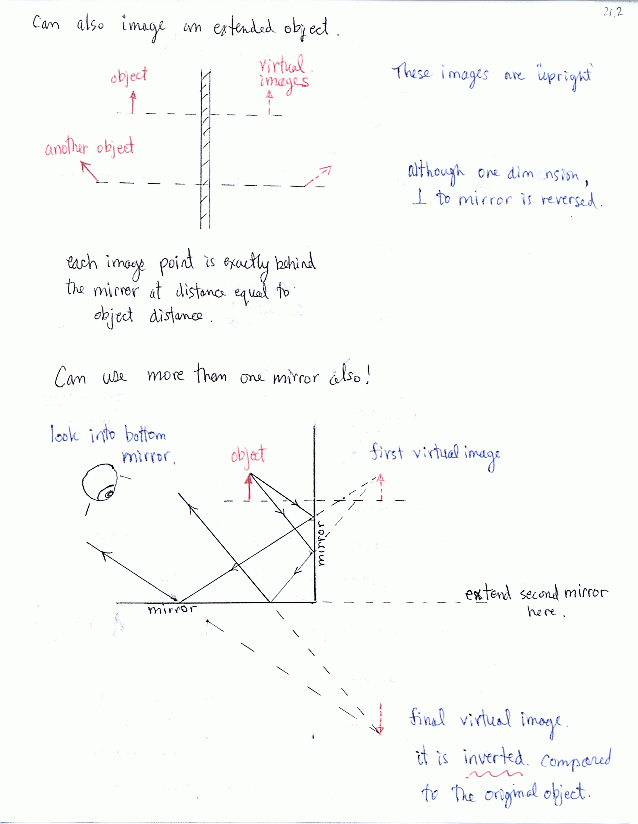 21.2
Can also image an extended object.
object
virtual
images
These images are "upright"
another object
although one dim nsion,
⊥ to mirror is reversed.
each image point is exactly behind
the mirror at distance equal to
object distance.
Can use more than one mirror also!
look into bottom
mirror.
object
first virtual image
mirror
mirror
extend second mirror
here.
final virtual image.
it is inverted. compared
to the original object.